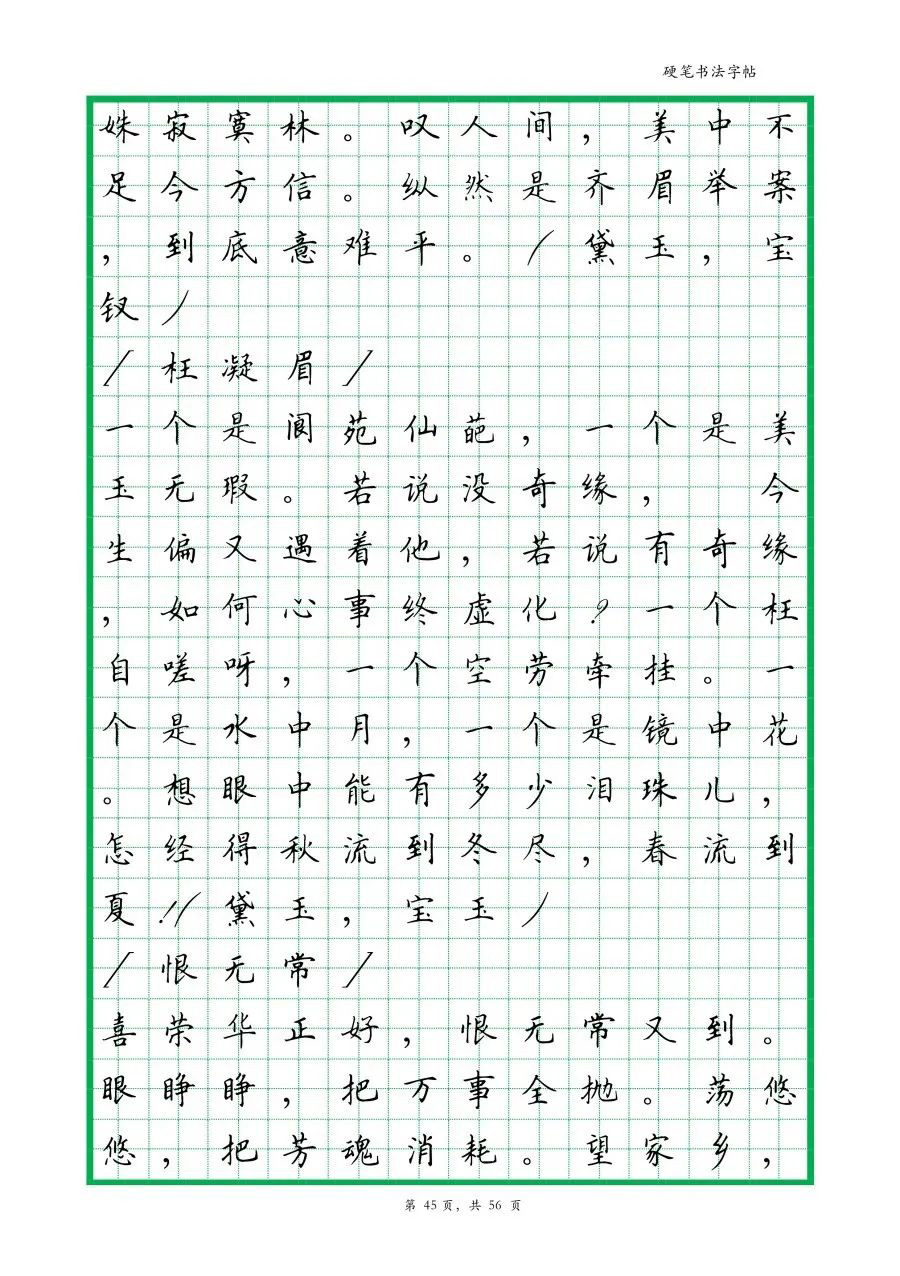 硬笔书法字帖
姝寂寞林。叹人间，美中不
足今方信。纵然是齐眉举案
，到底意难平。/黛玉，宝
钗/
/枉凝眉/
一个是阆苑仙葩，一个是美
玉无瑕。若说没奇缘， 今
生偏又遇着他，若说有奇缘
，如何心事终虚化？一个枉
自嗟呀，一个空劳牵挂。一
个是水中月，一个是镜中花
。想眼中能有多少泪珠儿，
怎经得秋流到冬尽，春流到
夏！/黛玉，宝玉/
/恨无常/
喜荣华正好，恨无常又到。
眼睁睁，把万事全抛。荡悠
悠，把芳魂消耗。望家乡，
第 45 页，共 56 页